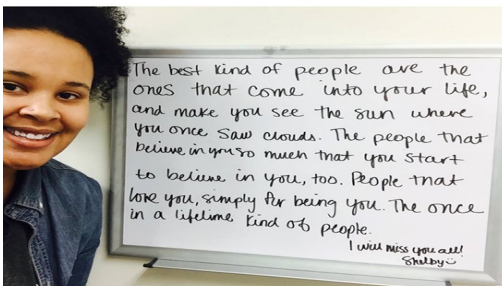 The best kind of people are the
ones that come into your life,
and make you see the sun where
you once saw clouds. The people that
believe in you so much that you start
to believe in you, too. People that
love you, simply for being you. The once
in a lifetime kind of people.
I will miss you all!
Shelby